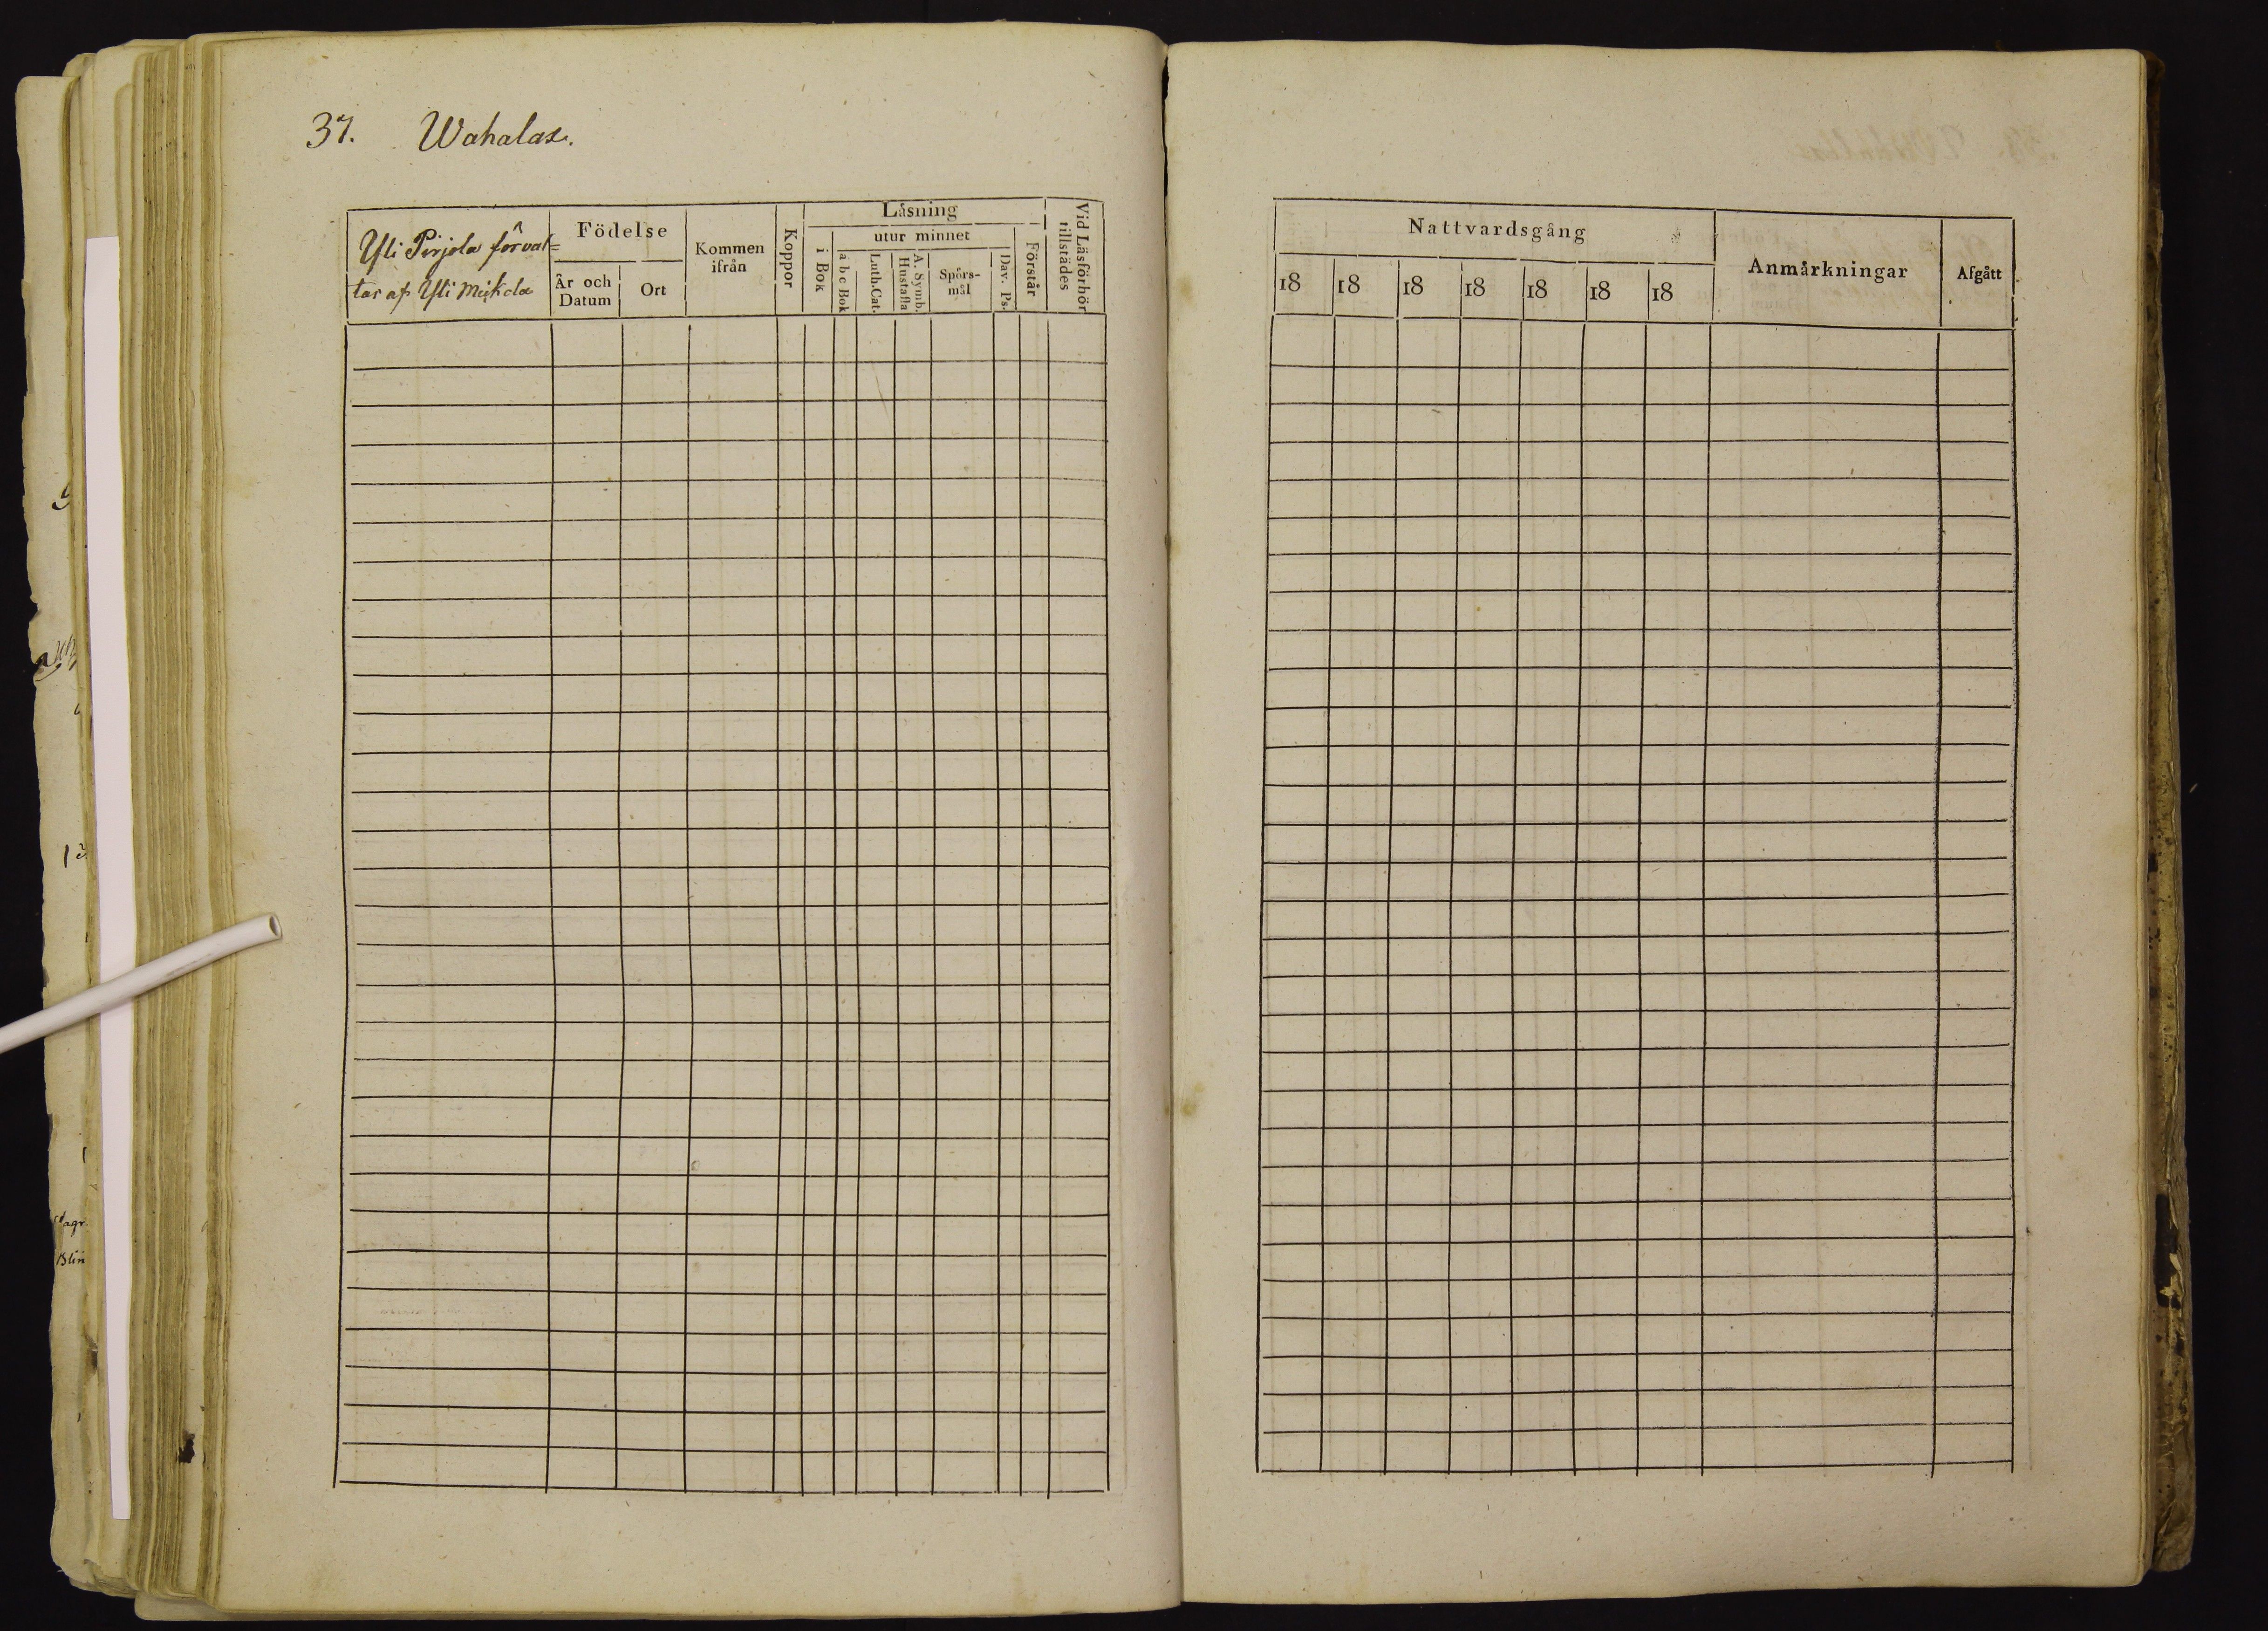 37. Wahalax.
Yli Pirjola förval=
tas af Yli Mickola
Födelse
År och
Datum
Ort
Kommen
ifrån
Koppor
Läsning
i Bok
utur minnet
a b c Bok
Luth. Cat.
A. Symb.
Hustafla
Spörs-
mål
Dav. Ps.
Förstår
Vid Läsförhör
tillstädes
Nattvardsgång
18 18 18 18 18 18 18
Anmärkningar
Afgått
Blin